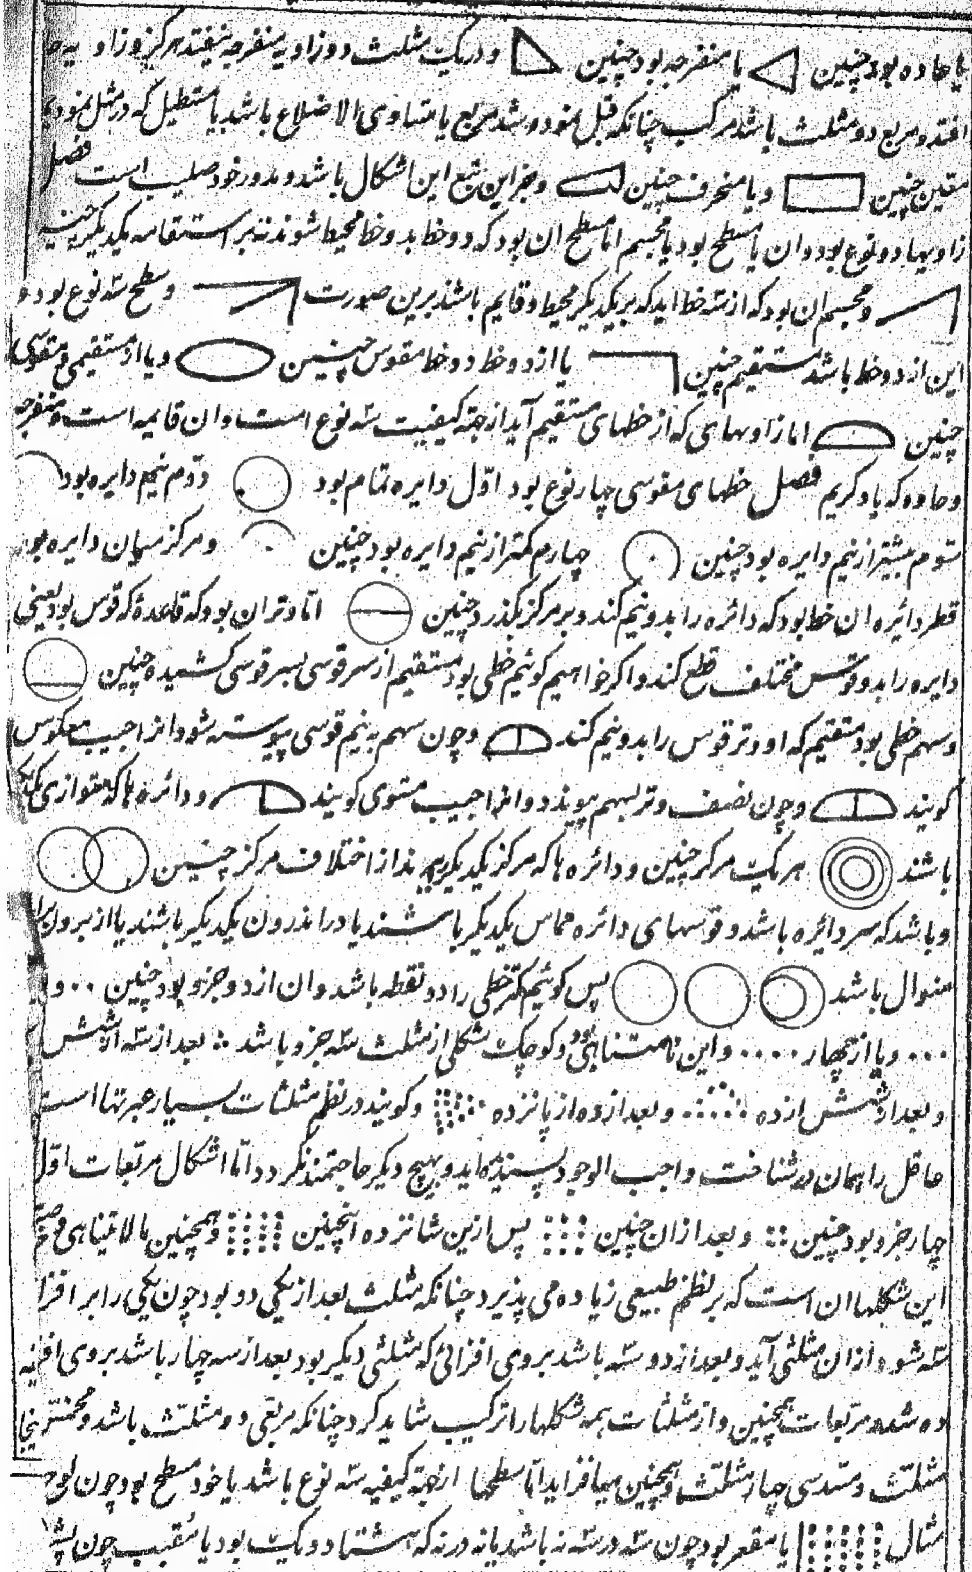 یا حاده بود چنین یا منفرجه بود چنین و در یک مثلث دو زاویه منفرجه نیفتد هرگز و زاویه حا
افتد و مربع دو مثلث باشد مرکب چنانکه قبل نمود و شد مربع یا متساوی الاضلاع باشد یا مستطیل که در مثل نمود یا
معین چنین و یا منحرف چنین و جز این تبع این اشکال باشد و مدور خود صلیب است فصل
زاویها دو نوع بود و ان یا مسطح بود یا مجسم اما مسطح ان بود که دو خط بدو خط محیط شوند نه بر استقامه یکدیگر چنین
و مجسم ان بود که از سه خط اید که بر یکدیگر محیط و قایم باشد برین صورت و سطح سه نوع بود و
این از دو خط باشد مستقیم چنین یا از دو خط دو خط مقوس چنین و یا از مستقیمی و مقوسی
چنین اما زاویهای که از خطهای مستقیم آید از جهة کیفیت سه نوع است و ان قایمه است و منفرجه
و حاده که یاد کردیم فصل خطهای مقوسی چهار نوع بود اول دایره تمام بود دوم نیم دایره بود
سوم بیشتر از نیم دایره بود چنین چهارم کمتر از نیم دایره بود چنین و مرکز میان دایره بود
قطر دائره ان خط بود که دائره را بدو نیم کند و بر مرکز بگذرد چنین اما وتر ان بود که قاعدهٔ که قوس بود یعنی
دایره را بدو قوس مختلف قطع کند و اگر خواهیم گوئیم خطی بود مستقیم از سر قوسی بسر قوسی کشیده چنین
و سهم خطی بود مستقیم که او وتر قوس را بدو نیم کند و چون سهم به نیم قوسی پیوسته شود انرا جیب معکوس
گویند و چون نصف وتر بسهم پیوندد و انرا جیب مستوی گویند و دائره ها که متوازی یکدیگر
باشند هر یک مرکز چنین و دائره ها که مرکز یکدیگر ببرند از اختلاف مرکز چنین
و باشد که سر دائره باشد و قوسهای دائره مماس یکدیگر باشند یا در اندرون یکدیگر باشند یا از برون برا
منوال باشد پس گوئیم کمتر خطی را دو نقطه باشد و ان از دو جزو بود چنین و
و یا از چهار و این نامتناهی بود و کوچک شکلی از مثلث سه جزو باشد بعد از سه از شش
و بعد از شش از ده و بعد از ده از پانزده و گویند در نظم مثلثات بسیار عبرتها است
عاقل را بمان شناخت واجب الوجود پسندیده اید و بهیچ دیگر حاجتمند نگردد اما اشکال مربعات اول
چهار جزو بود چنین و بعد از ان چنین پس ازین شانزده اینچنین و همچنین بالا میتناهی
این شکلها ان است که بر نظم طبیعی زیاده می پذیرد چنانکه مثلث بعد از یکی دو بود چون یکی را بر افزا
سه شود از ان مثلثی آید و بعد از دو سه باشد بر وی افزائی که مثلثی دیگر بود بعد از سه چهار باشد بر وی افزایند
ده شده مربعات همچنین و از مثلثات همه شکلها را ترکیب شاید کرد چنانکه مربعی دو مثلث باشد و مخمس
مثلث و مسدسی چهار مثلث و همچنین میافزاید اما سطحها از جهة کیفیه سه نوع باشد یا خود مسطح بود چون لوح
مثال یا مقعر بود چون سه در سه نه باشد یا نه در نه که هشتاد و یک بود یا مقبب چون